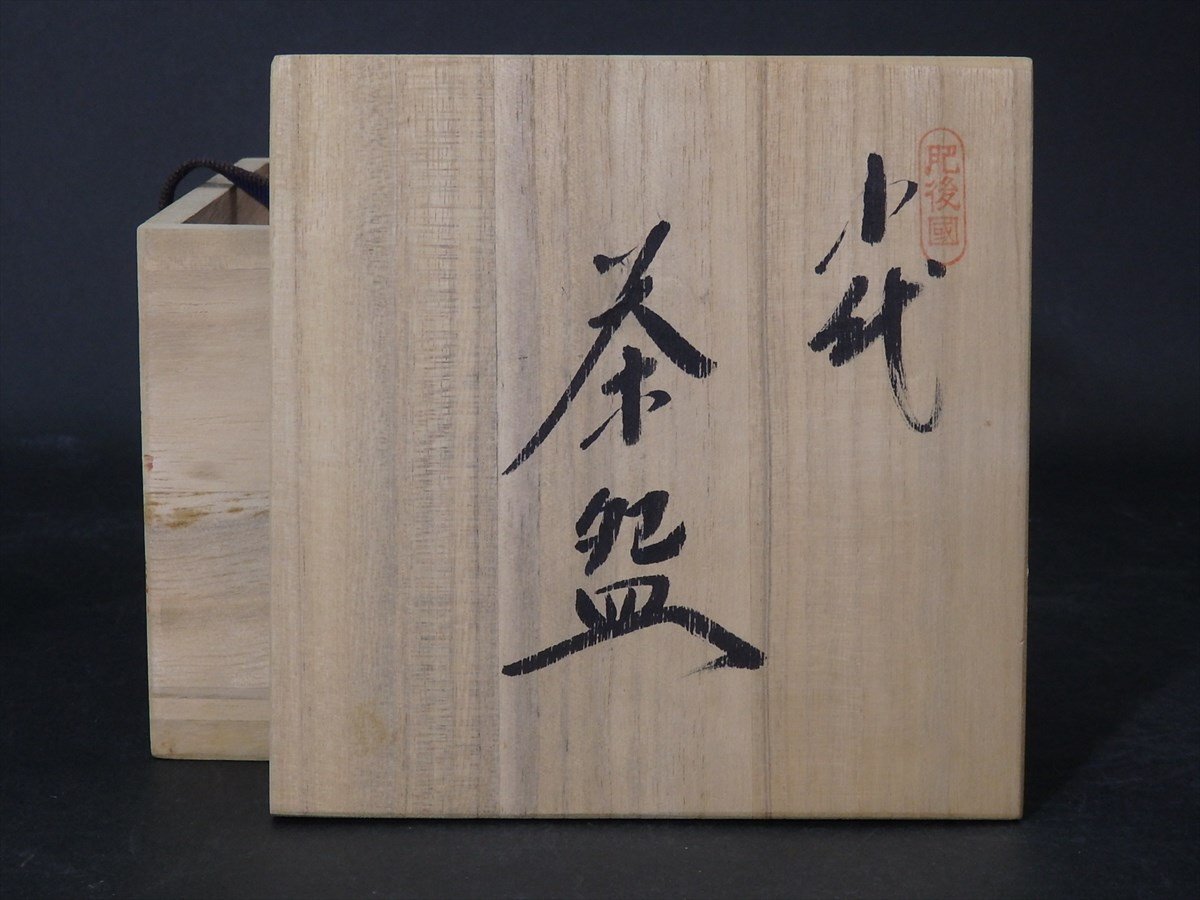 肥後國
小代
茶盌